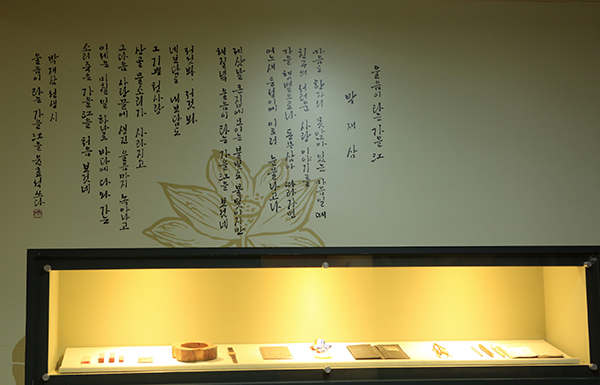 울음이 타는 가을 江
박 재 삼
마음도 한자리 못 앉아 있는 마음일 때
친구의 서러운 사랑 이야기를
가을 햇볕으로나 동무삼아 따라가면
어느새 등성이에 이르러 눈물나고나
제삿날 큰집에 모이는 불빛도 불빛이지만
해질녘 울음이 타는 가을江을 보겠네
저것봐, 저것봐
네보담도 내보담도
그 기쁜 첫사랑
산골 물소리가 사라지고
그 다음 사랑 끝에 생긴 울음까지 녹아나고
이제는 미칠 일 하나로 바다에 다 와 가는
소리죽은 가을江을 처음 보겠네
박재삼 선생 시
울음이 타는 가을江을 쓰다